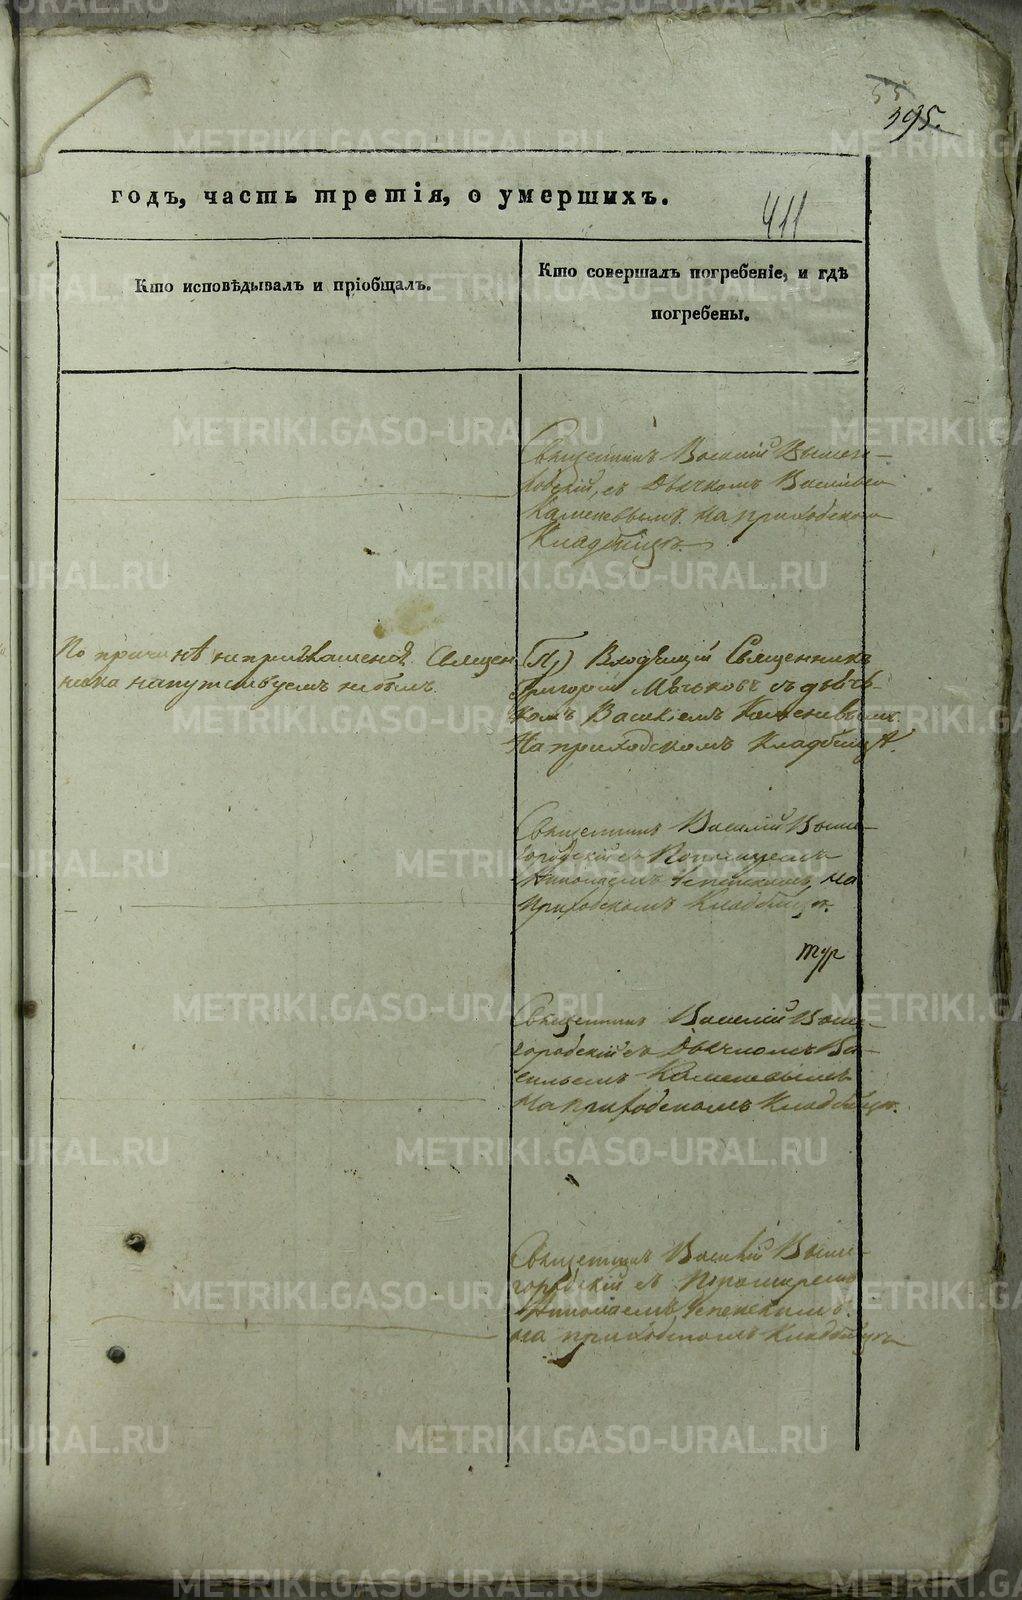 55
395.
годъ, часть третія, о умершихъ.
411
Кто исповѣдывалъ и пріобщалъ.
Кто совершалъ погребеніе, и гдѣ
погребены.
Священникъ Василій Вышего-
родскій, съ Дьячкомъ Васильемъ
Каменевымъ на приходскомъ
Кладбищѣ.
По причинѣ неприглашенія Священ
ника напутствуемъ небылъ.
Входящій Священникъ
Григорій съ дьяч-
комъ Василіемъ Каменевымъ
На приходскомъ Кладбищѣ.
Священникъ Василій Выше-
городскій съ Пономаремъ
Николаемъ Успенскимъ, на
Приходскомъ Кладбищѣ.
тур
Священникъ Василій Выше-
городскій съ Дьячкомъ Ва-
сильемъ Каменевымъ
на приходскомъ Кладбищѣ.
Священникъ Василій Выше-
городскій съ Пономаремъ
Николаемъ Успенскимъ
на приходскомъ Кладбищѣ
METRIKI.GASO-URAL.RU